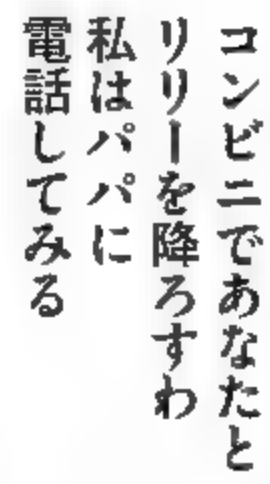 コンビニであなたと
リリーを降ろすわ
私はパパに
電話してみる